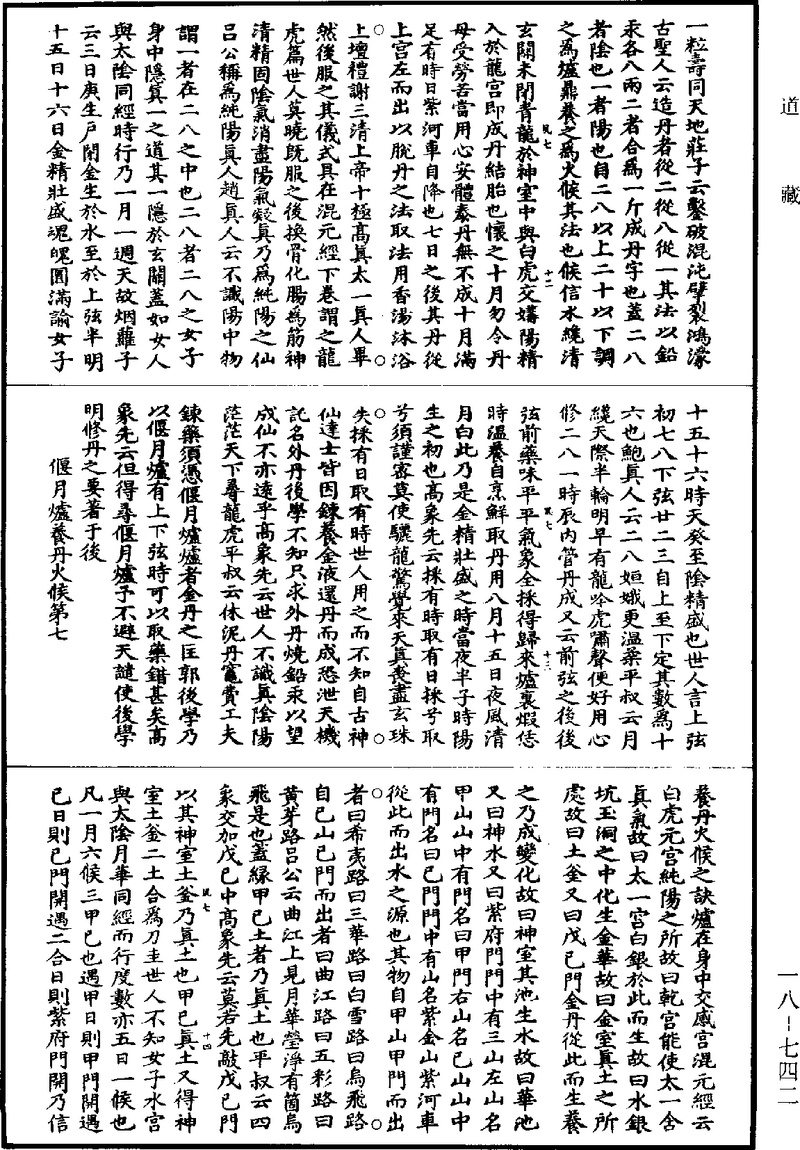 道藏
一粒壽同天地莊子云鑿破混沌擘裂鴻濛
古聖人云造丹者從二從八從一其法以鉛
汞各八兩二者合為一斤成丹字也蓋二八
者陰也一者陽也自二八以上二十以下調
之為爐鼎養之為火候其法也候信水纔清
玄關未閉青龍於神室中與白虎交媾陽精
入於龍宮即成丹結胎也懷之十月勿令丹
母受勞苦當用心安體養丹無不成十月滿
足有時日紫河車自降也七日之後其丹從
上宮左而出以脫丹之法取法用香湯沐浴
上壇禮謝三清上帝十極高真太一真人畢
然後服之其儀式具在混元經下卷謂之龍
虎篇世人莫曉既服之後換骨化腸為筋神
清精固陰氣消盡陽氣凝真乃為純陽之仙
呂公稱為純陽真人趙真人云不識陽中物
謂一者在二八之中也二八者二八之女子
身中隱真一之道其一隱於玄關蓋如女人
與太陰同經時行乃一月一週天故烟蘿子
云三日庚生戶閉金生於水至於上弦半明
十五日十六日金精壯盛魂魄圓滿諭女子
十五十六時天癸至陰精盛也世人言上弦
初七八下弦廿二三自上至下定其數為十
六也鮑真人云二八姮娥更溫柔平叔云月
纔天際半輪明早有龍吟虎嘯聲便好用心
修二八一時辰內管丹成又云前弦之後後
弦前藥味平平氣象全採得歸來爐裏煅恁
時溫養自烹鮮取丹用八月十五日夜風清
月白此乃是金精壯盛之時當夜半子時陽
生之初也高象先云採有時取有日採兮取
兮須謹密莫使驪龍驚覺來天真喪盡玄珠
失採有日取有時世人用之而不知自古神
仙達士皆因鍊養金液還丹而成恐泄天機
託名外丹後學不知只求外丹燒鉛汞以望
成仙不亦遠乎高象先云世人不識真陰陽
茫茫天下尋龍虎平叔云休泥丹竈費工夫
鍊藥須憑偃月爐爐者金丹之匡郭後學乃
以偃月爐有上下弦時可以取藥錯甚矣高
象先云但得尋偃月爐予不避天譴使後學
明修丹之要著于後
偃月爐養丹火候第七
養丹火候之訣爐在身中交感宮混元經云
白虎元宮純陽之所故曰乾宮能使太一含
真氣故曰太一宮白銀於此而生故曰水銀
坑玉洞之中化生金華故曰金室真土之所
處故曰土釜又曰戊巳門金丹從此而生養
之乃成變化故曰神室其池生水故曰華池
又曰神水又曰紫府門門中有三山左山名
甲山山中有門名曰甲門右山名巳山山中
有門名曰巳門門中有山名紫金山紫河車
從此而出水之源也其物自甲山甲門而出
者曰希夷路曰三華路曰白雪路曰烏飛路
自巳山巳門而出者曰曲江路曰五彩路曰
黃芽路呂公云曲江上見月華瑩淨有箇烏
飛是也蓋緣甲巳土者乃真土也平叔云四
象交加戊巳中高象先云莫若先敲戊巳門
以其神室土釜乃真土也甲巳真土又得神
室土釜二土合為刀圭世人不知女子水宮
與太陰月華同經而行度數亦五日一候也
凡一月六候三甲巳也遇甲日則甲門開遇
巳日則巳門開遇二合日則紫府門開乃信
一八－七四二